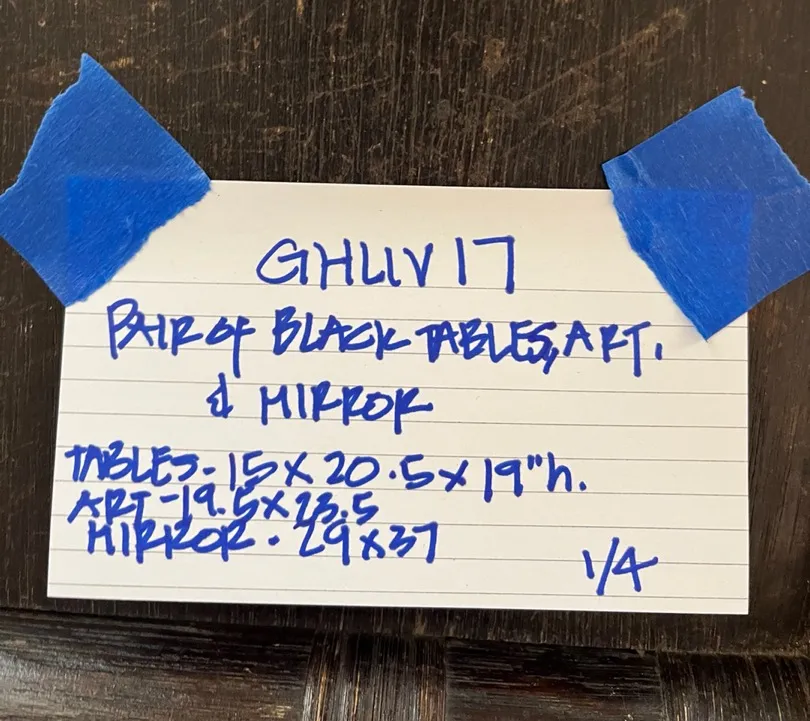 GHLIV 17
PAIR OF BLACK TABLES, ART,
& MIRROR
TABLES - 15 X 20.5 X 19"h.
ART - 19.5 X 23.5
MIRROR - 29 X 37
1/4